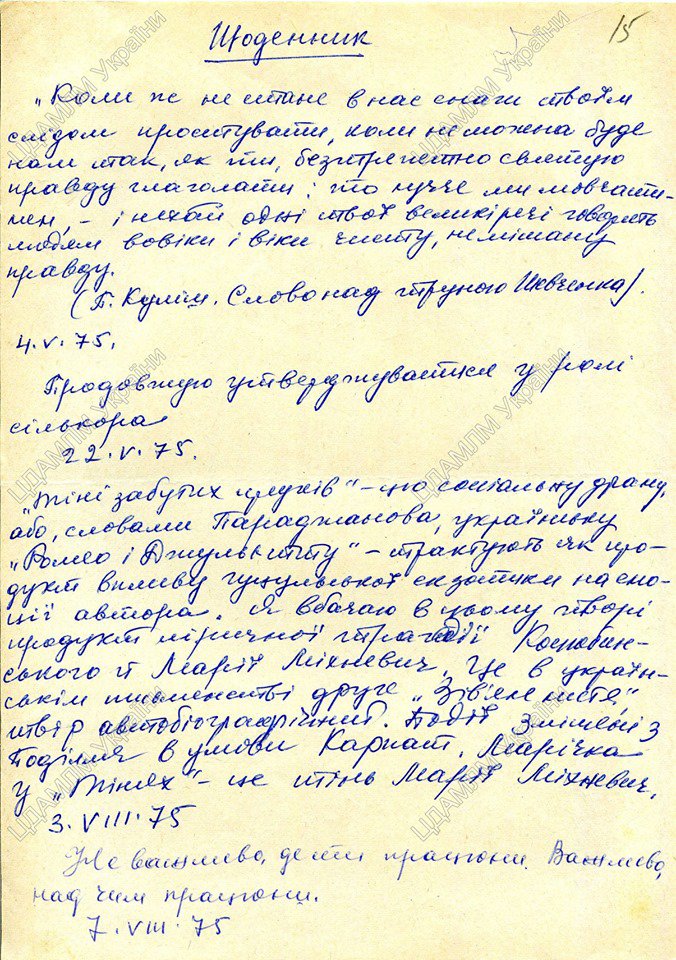 Щоденник
15
„Коли ж не стане в нас снаги твоїм
слідом простувати, коли не можна буде
нам так, як ти, безтрепетно святую
правду глаголати: то лучче ми мовчати-
мем – і нехай одні твої великі речі говорять
людям вовіки і віки чисту, немішану
правду.
(Б. Куліш. Слово над труною Шевченка).
4.V.75.
Продовжую утверджуватися у ролі
сількора
22.V.75.
„Тіні забутих предків" – цю соціальну драму,
або, словами Параджанова, українську
„Ромео і Джульєтту" – трактують як про-
дукт впливу гуцульської екзотики на емо-
ції автора. Я вбачаю в цьому творі
продукт ліричної трагедії Коцюбин-
ського й Марії Міхневич. Це в україн-
ськім письменстві друге „Зів'яле листя",
твір автобіографійний. Події зміщені з
Поділля в умови Карпат. Марічка
у „Тінях" – це тінь Марії Міхневич.
3.VIII.75
Не важливо, де ти працюєш. Важливо,
над чим працюєш.
7.VIII.75